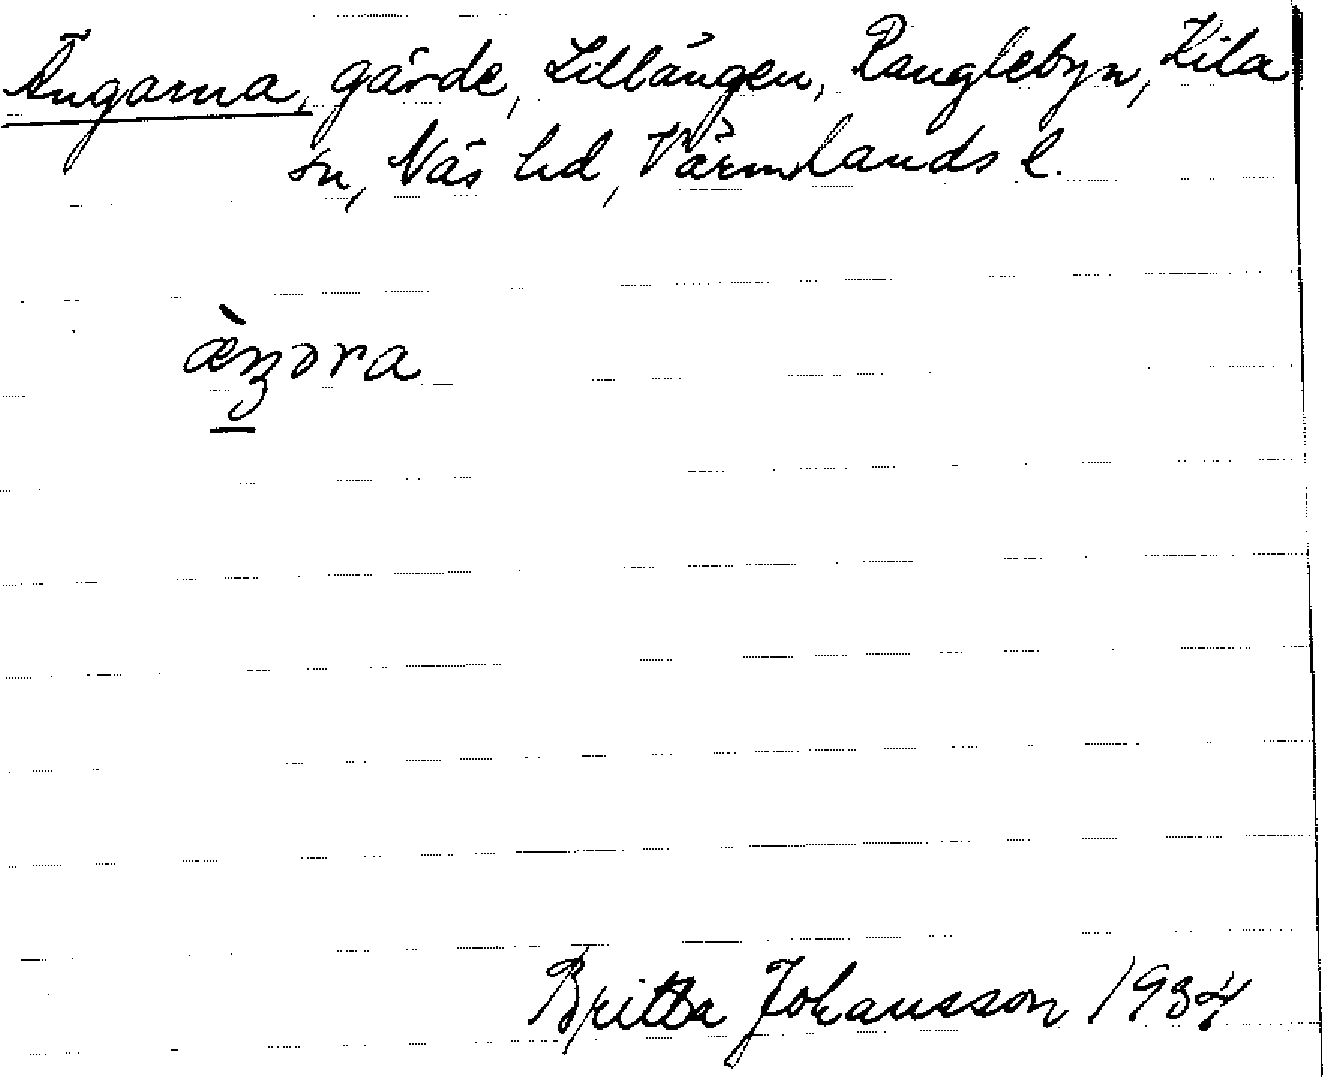 Ängarna, gärde, Lillängen, Ranglebyn, Kila
sn, Näs hd, Värmlands l.
æ̀ŋəra
Britta Johansson 1934